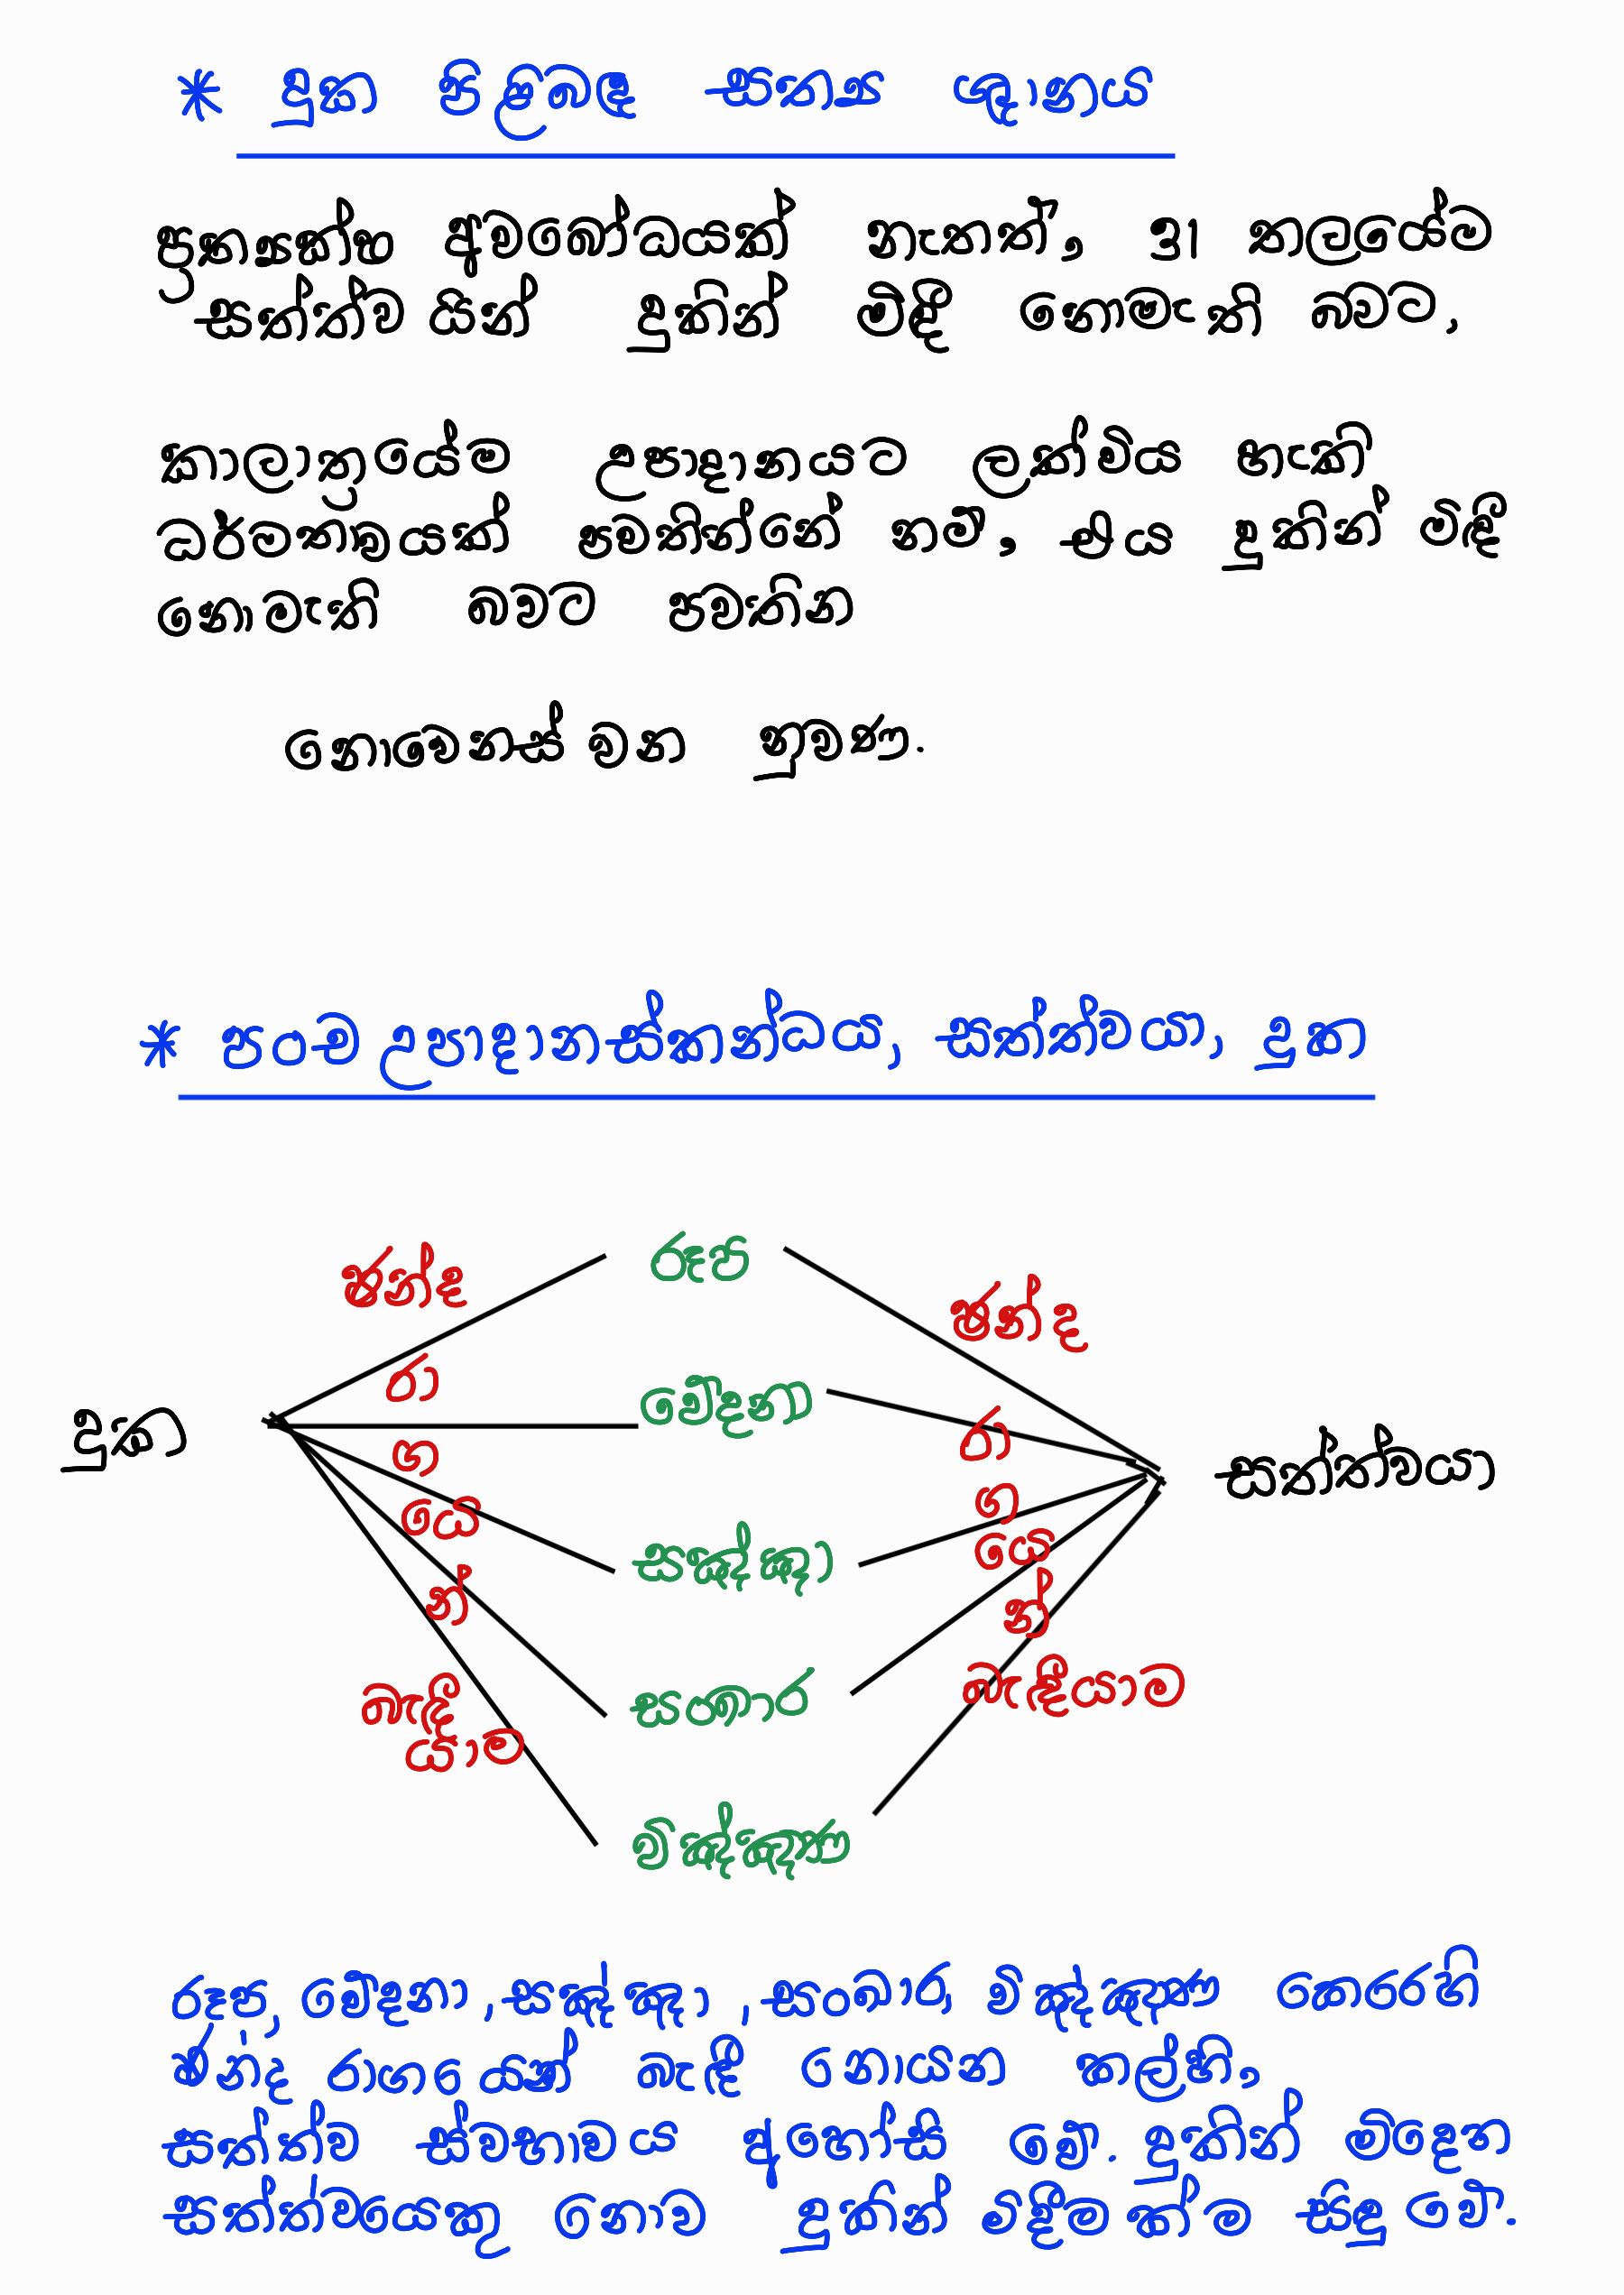 * දුක පිළිබඳ සත්‍ය ඥානය
ප්‍රත්‍යක්ෂ අවබෝධයක් නැතත්, 31 තලයේම
සත්ත්වයින් දුකින් මිඳී නොමැති බවට,
කාලාත්‍රයේම උපාදානයට ලක්විය හැකි
ධර්මතාවයක් පවතින්නේ නම්, එය දුකින් මිඳී
නොමැති බවට පවතින
නොවෙනස් වන නුවණ.
* පංච උපාදානස්කන්ධය, සත්ත්වයා, දුක
ඡන්ද රූප ඡන්ද
රා වේදනා රා
දුක ග සත්ත්වයා
යෙ සඤ්ඤා ග
න් යෙ
න්
බැඳී සංඛාර බැඳීයාම
යාම
විඤ්ඤාණ
රූප, වේදනා, සඤ්ඤා, සංඛාර, විඤ්ඤාණ කෙරෙහි
ඡන්ද රාගයෙන් බැඳී නොයන කල්හි,
සත්ත්ව ස්වභාවය අහෝසි වේ. දුකින් මිදෙන
සත්ත්වයෙකු නොව දුකින් මිදීමක්ම සිඳු වේ.